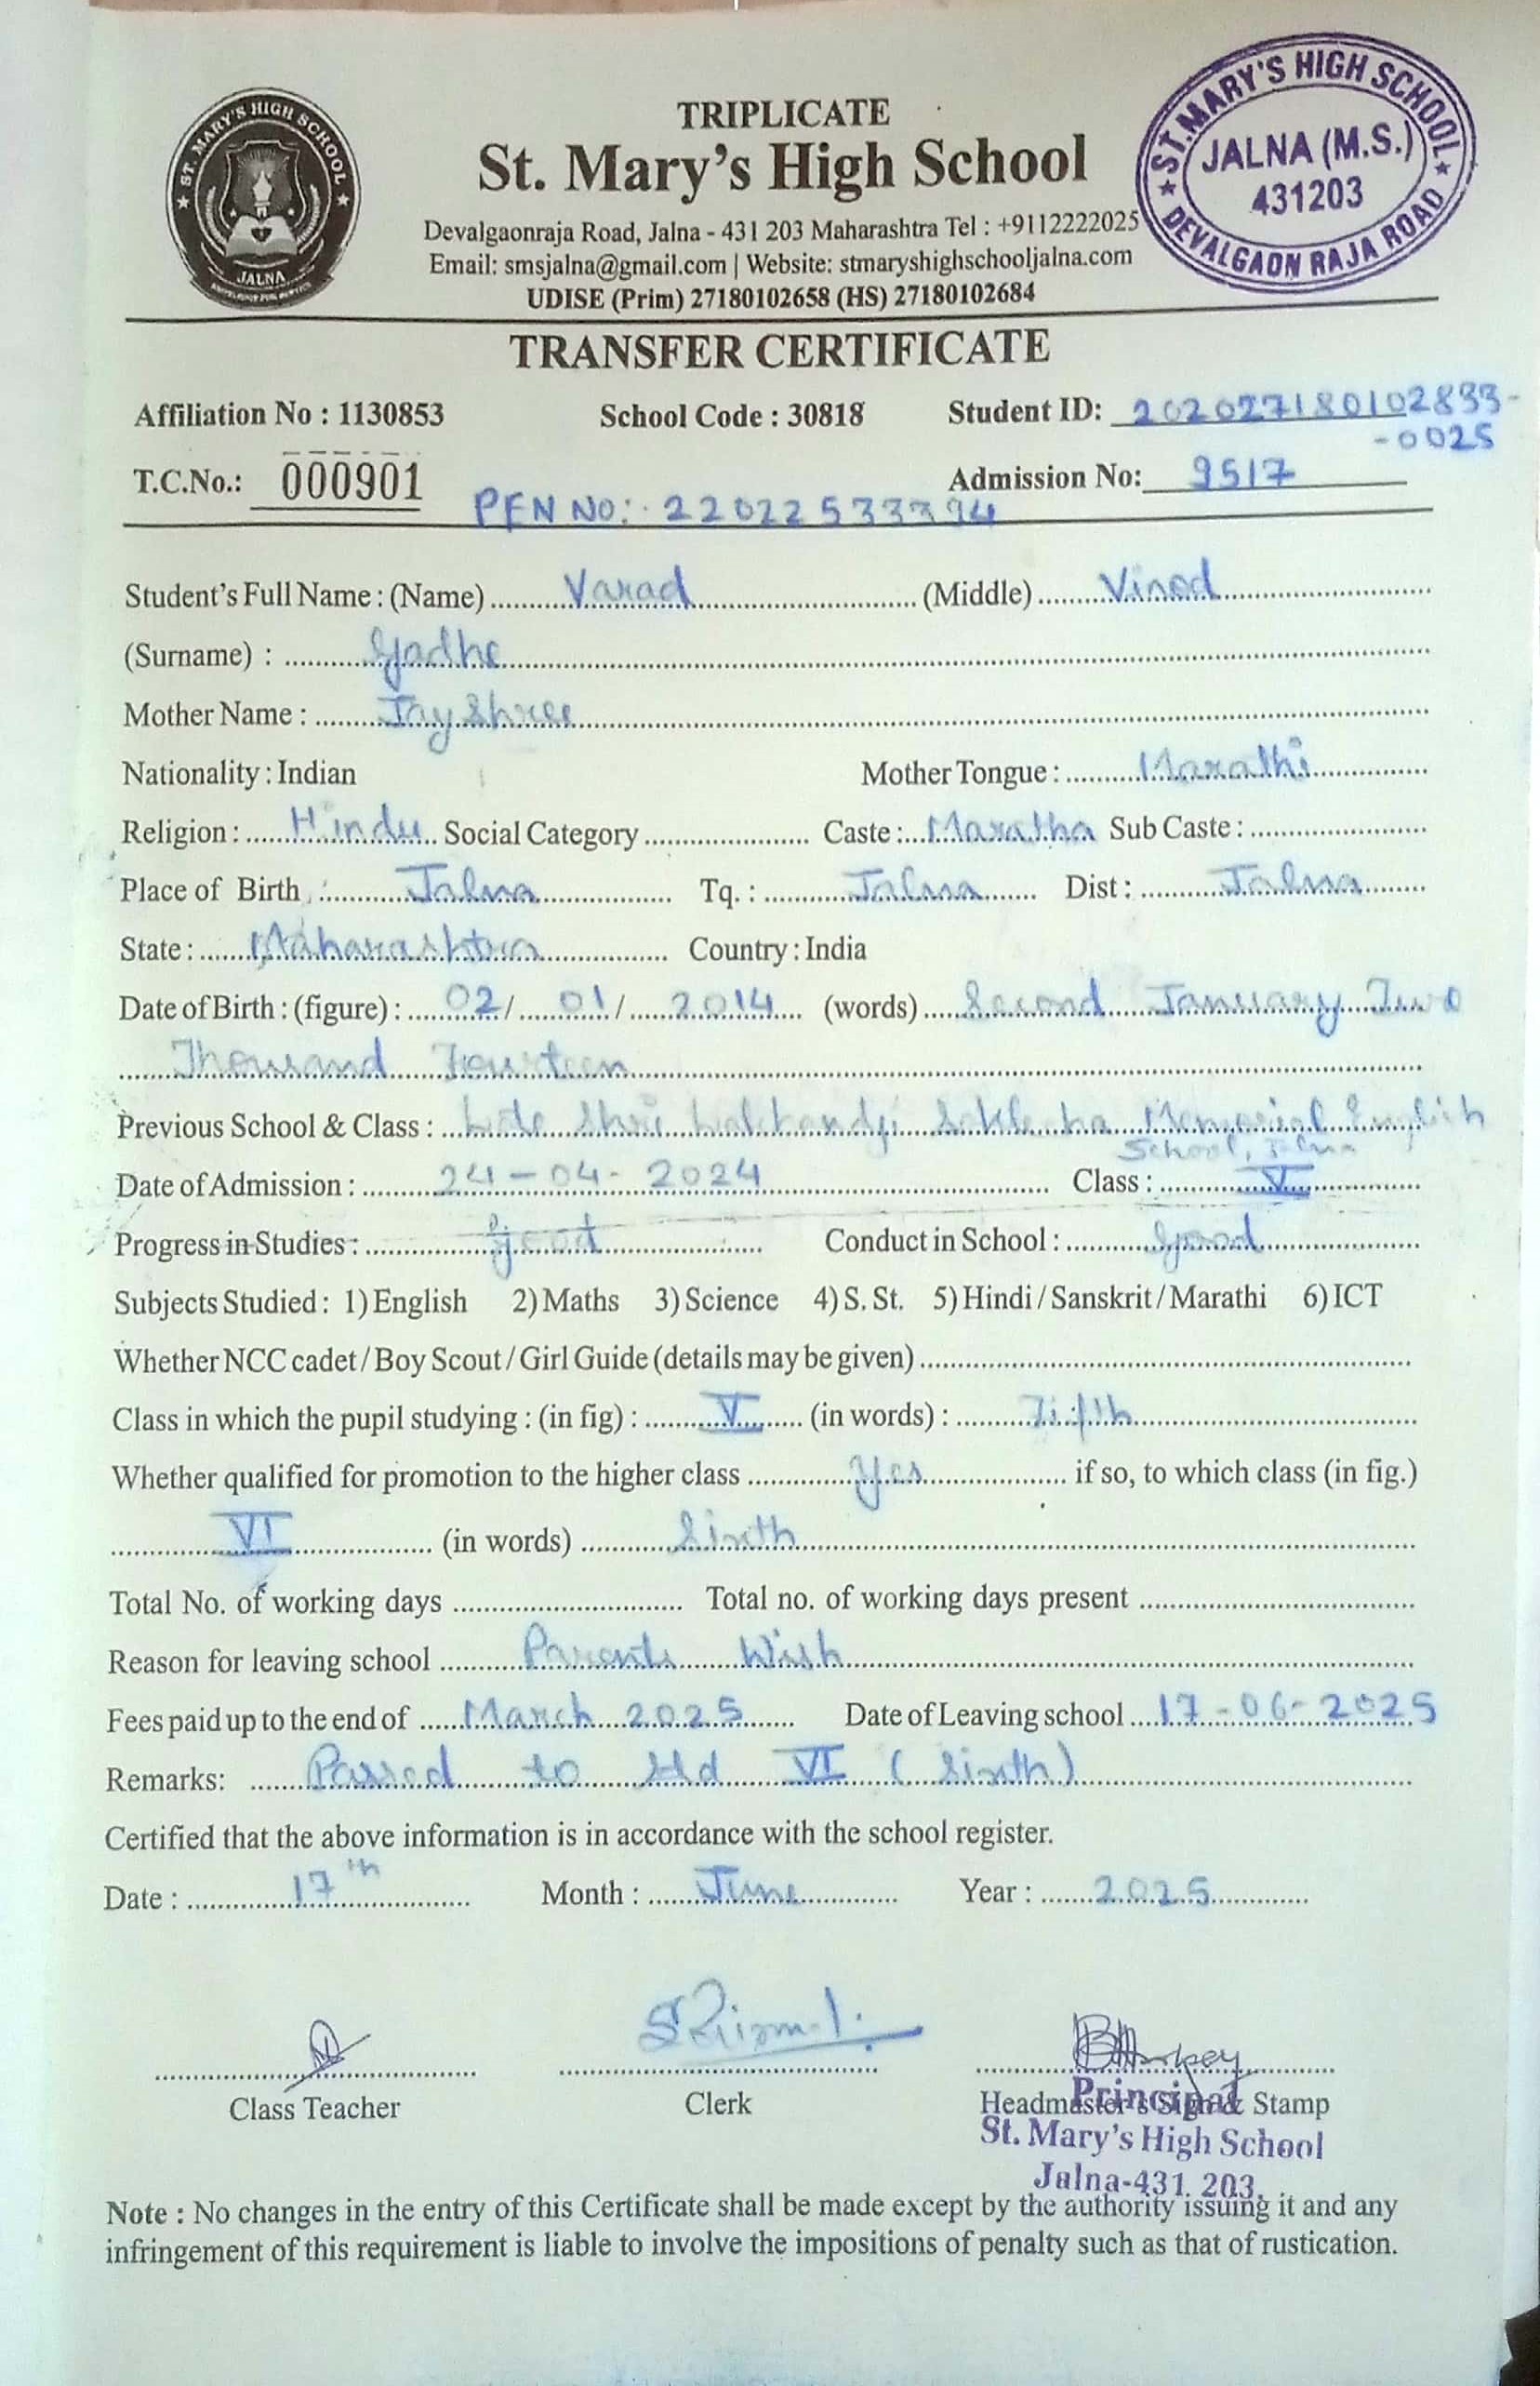 TRIPLICATE
St. Mary's High School
Devalgaonraja Road, Jalna - 431 203 Maharashtra Tel : +9112222025
Email: smsjalna@gmail.com | Website: stmaryshighschooljalna.com
UDISE (Prim) 27180102658 (HS) 27180102684
ST. MARY'S HIGH SCHOOL
JALNA
ST. MARY'S HIGH SCHOOL
JALNA (M.S.)
431203
DEVALGAON RAJA ROAD
TRANSFER CERTIFICATE
Affiliation No : 1130853 School Code : 30818 Student ID: 202027180102833-
-0025
T.C.No.: 000901 Admission No: 9517
PEN NO: 22022533394
Student's Full Name : (Name) Varad (Middle) Vinod
(Surname) : Gadhe
Mother Name : Jayshree
Nationality : Indian Mother Tongue : Marathi
Religion : Hindu Social Category Caste : Maratha Sub Caste :
Place of Birth : Jalna Tq. : Jalna Dist : Jalna
State : Maharashtra Country : India
Date of Birth : (figure) : 02/ 01/ 2014 (words) Second January Two
Thousand Fourteen
Previous School & Class : Late Shri Memorial English
School, Jalna
Date of Admission : 24-04-2024 Class : V
Progress in Studies : good Conduct in School : Good
Subjects Studied : 1) English 2) Maths 3) Science 4) S. St. 5) Hindi / Sanskrit / Marathi 6) ICT
Whether NCC cadet / Boy Scout / Girl Guide (details may be given)
Class in which the pupil studying : (in fig) : V (in words) : Fifth
Whether qualified for promotion to the higher class Yes if so, to which class (in fig.)
VI (in words) Sixth
Total No. of working days Total no. of working days present
Reason for leaving school Parents Wish
Fees paid up to the end of March 2025 Date of Leaving school 17-06-2025
Remarks: Passed to Std VI (Sixth)
Certified that the above information is in accordance with the school register.
Date : 17th Month : June Year : 2025
Class Teacher Clerk Headmaster's Sign & Stamp
Principal
St. Mary's High School
Jalna-431 203.
Note : No changes in the entry of this Certificate shall be made except by the authority issuing it and any
infringement of this requirement is liable to involve the impositions of penalty such as that of rustication.